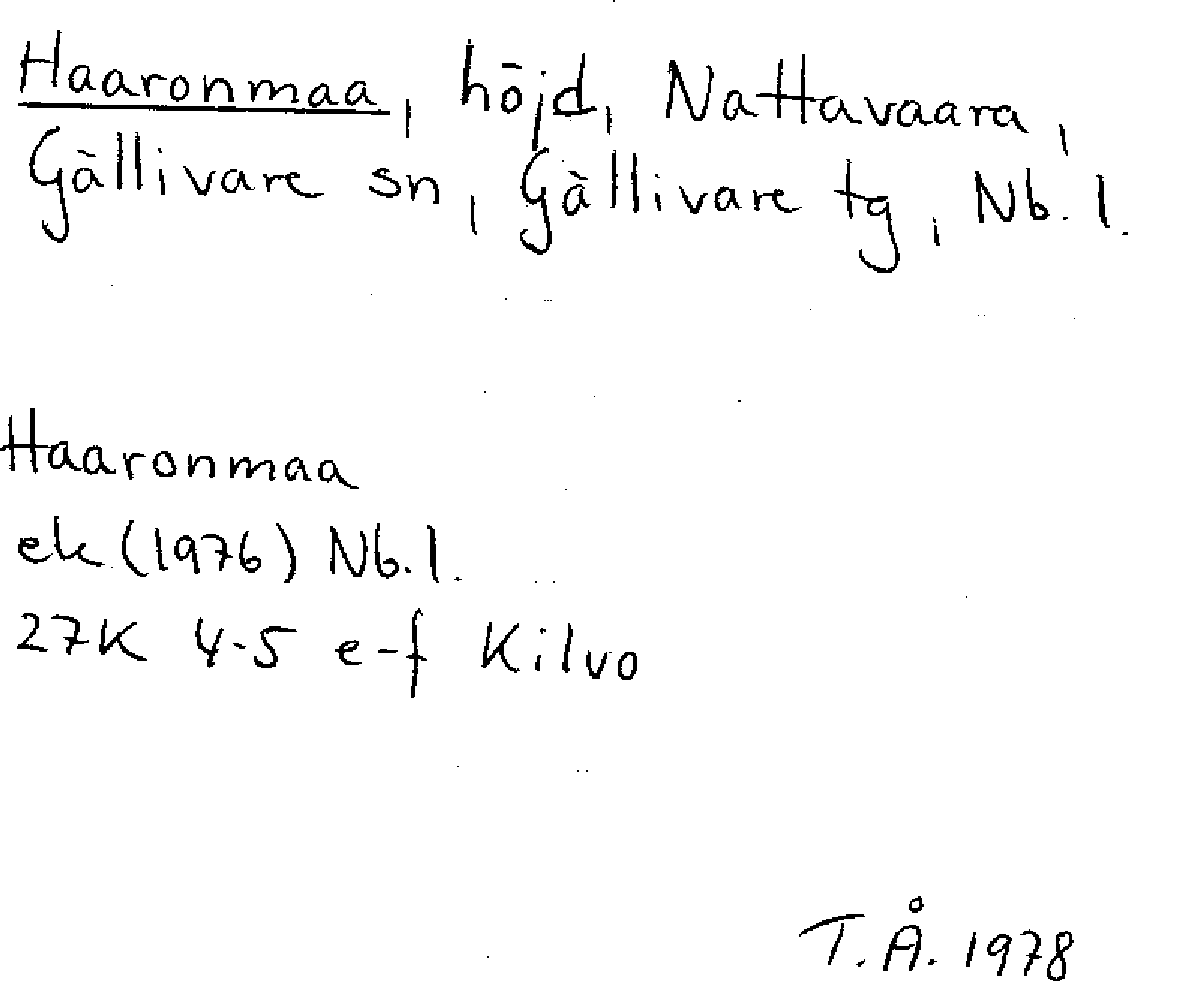 Haaronmaa, höjd, Nattavaara,
Gällivare sn, Gällivare tg, Nb. l.
Haaronmaa
ek (1976) Nb. l.
27K 4-5 e-f Kilvo
T. Å. 1978